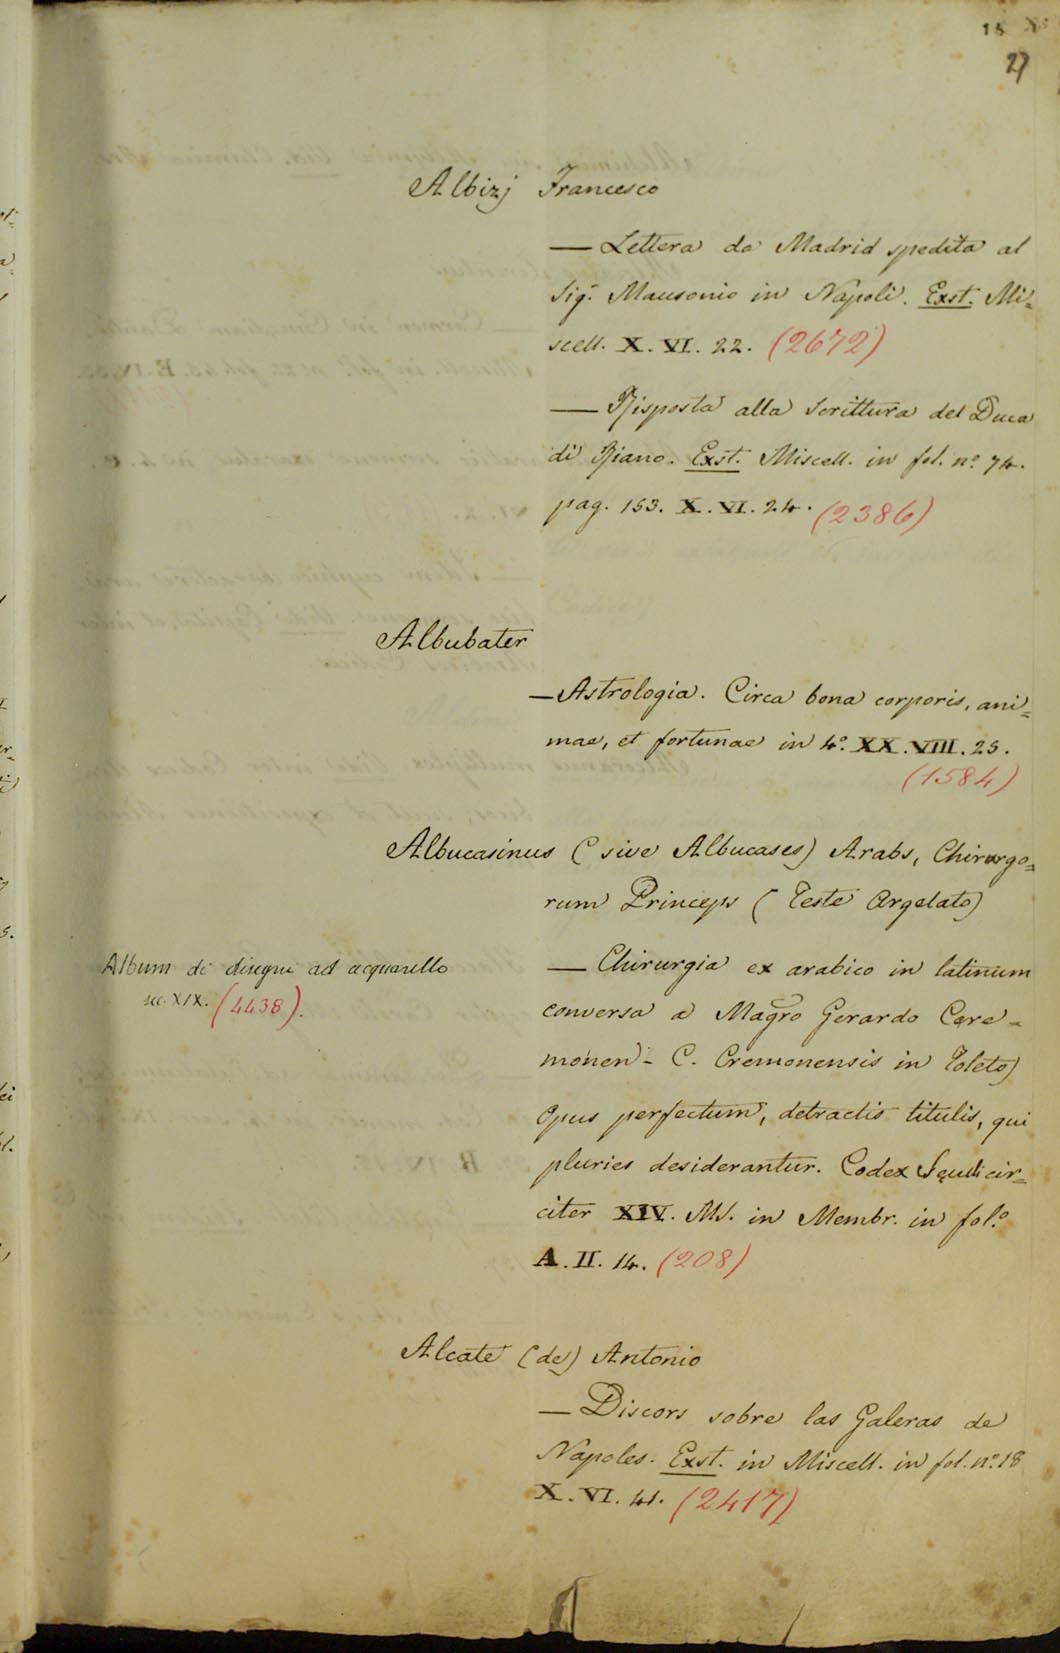 18
27
Albizj Francesco
— Lettera da Madrid spedita al
Sigr. Mausonio in Napoli. Exst. Mi=
scell. X. VI. 22. (2672)
— Risposta alla Scrittura del Duca
di Riano. Exst. Miscell. in fol. n.º 74.
pag. 153. X. VI. 24. (2386)
Albubater
— Astrologia. Circa bona corporis, ani=
mae, et fortunae in 4.º XX. VIII. 25.
(1584)
Albucasinus (sive Albucases) Arabs, Chirurgo=
rum Princeps (Teste Argelato)
— Chirurgia ex arabico in latinum
conversa a Magro Gerardo Cere=
monen - C. Cremonensis in Toleto)
Opus perfectum, detractis titulis, qui
pluries desiderantur. Codex Sęculi cir=
citer XIV. MS. in Membr. in fol.º
A. II. 14. (208)
Album di disegni ad acquarello
sec. XIX. (4438).
Alcate (de) Antonio
— Discors sobre las Galeras de
Napoles. Exst. in Miscell. in fol. n.º 18
X. VI. 41. (2417)